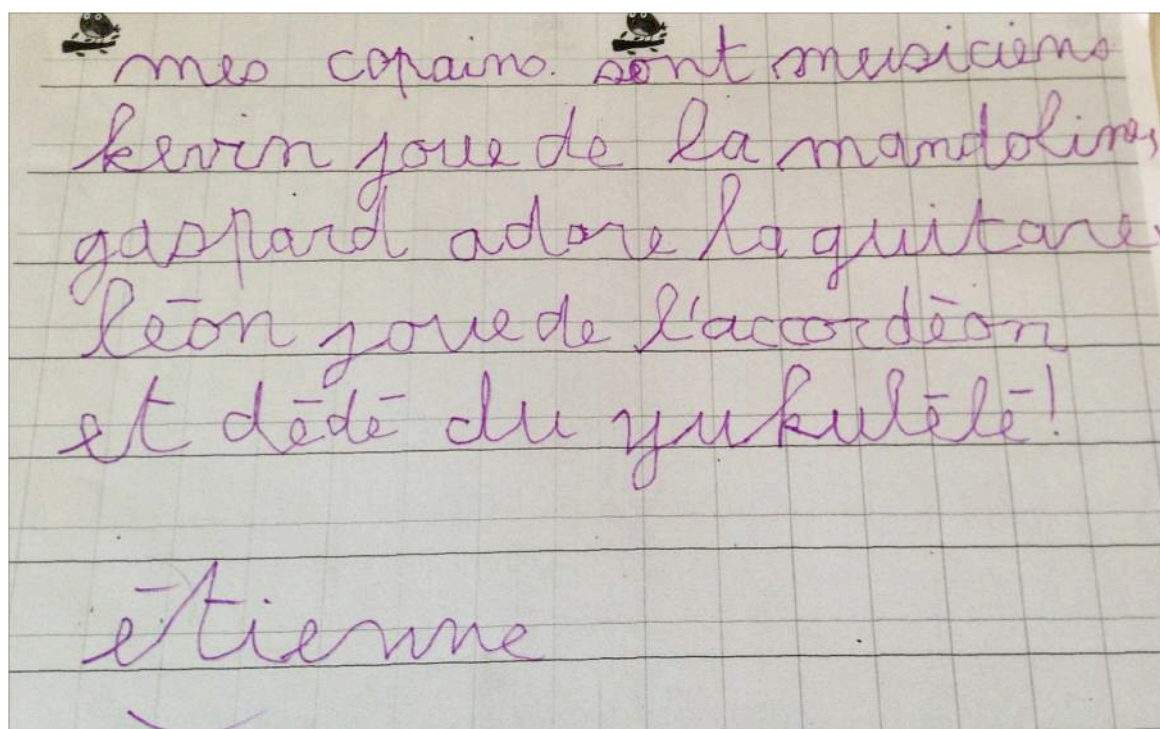 mes copains. sont musiciens
kevin joue de la mandoline,
gaspard adore la guitare,
léon joue de l'accordéon
et dédé du yukulélé!
étienne